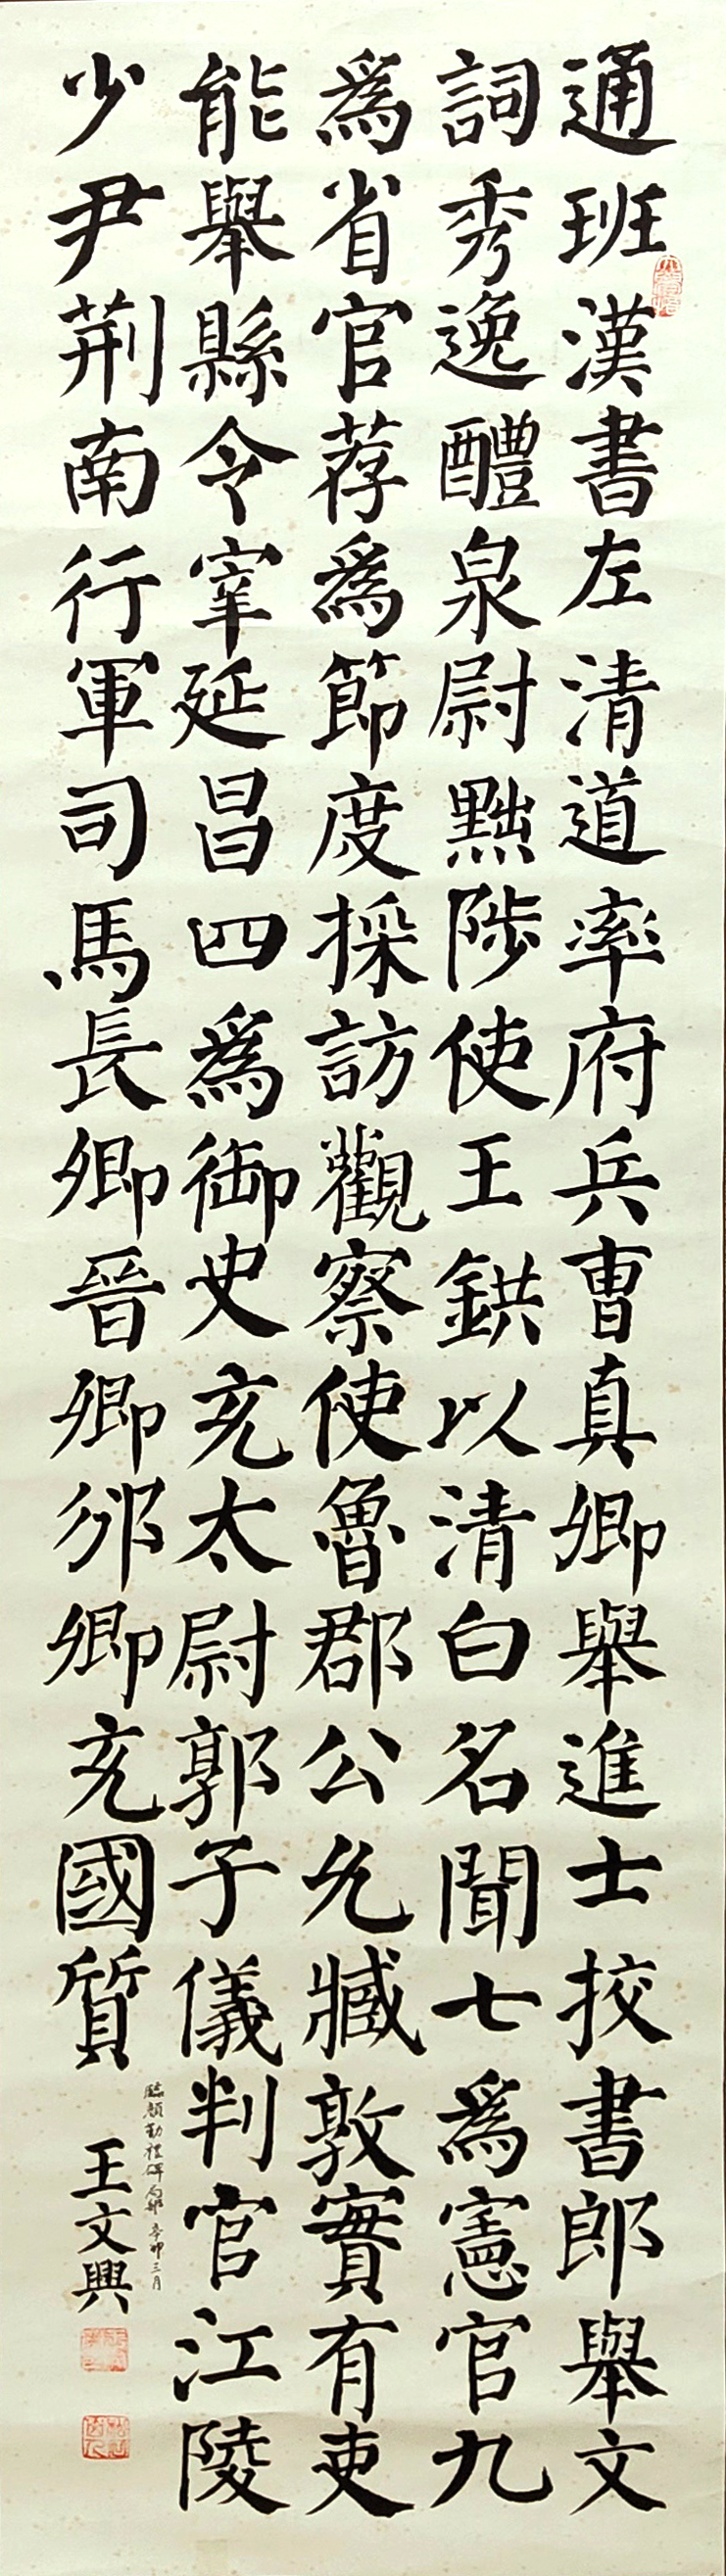 通班漢書左清道率府兵曹真卿舉進士挍書郎舉文
詞秀逸醴泉尉黜陟使王鉷以清白名聞七為憲官九
為省官荐為節度採訪觀察使魯郡公允臧敦實有吏
能舉縣令宰延昌四為御史充太尉郭子儀判官江陵
少尹荊南行軍司馬長卿晉卿邠卿充國質
臨顏勤禮碑局部 辛卯三月
王文興